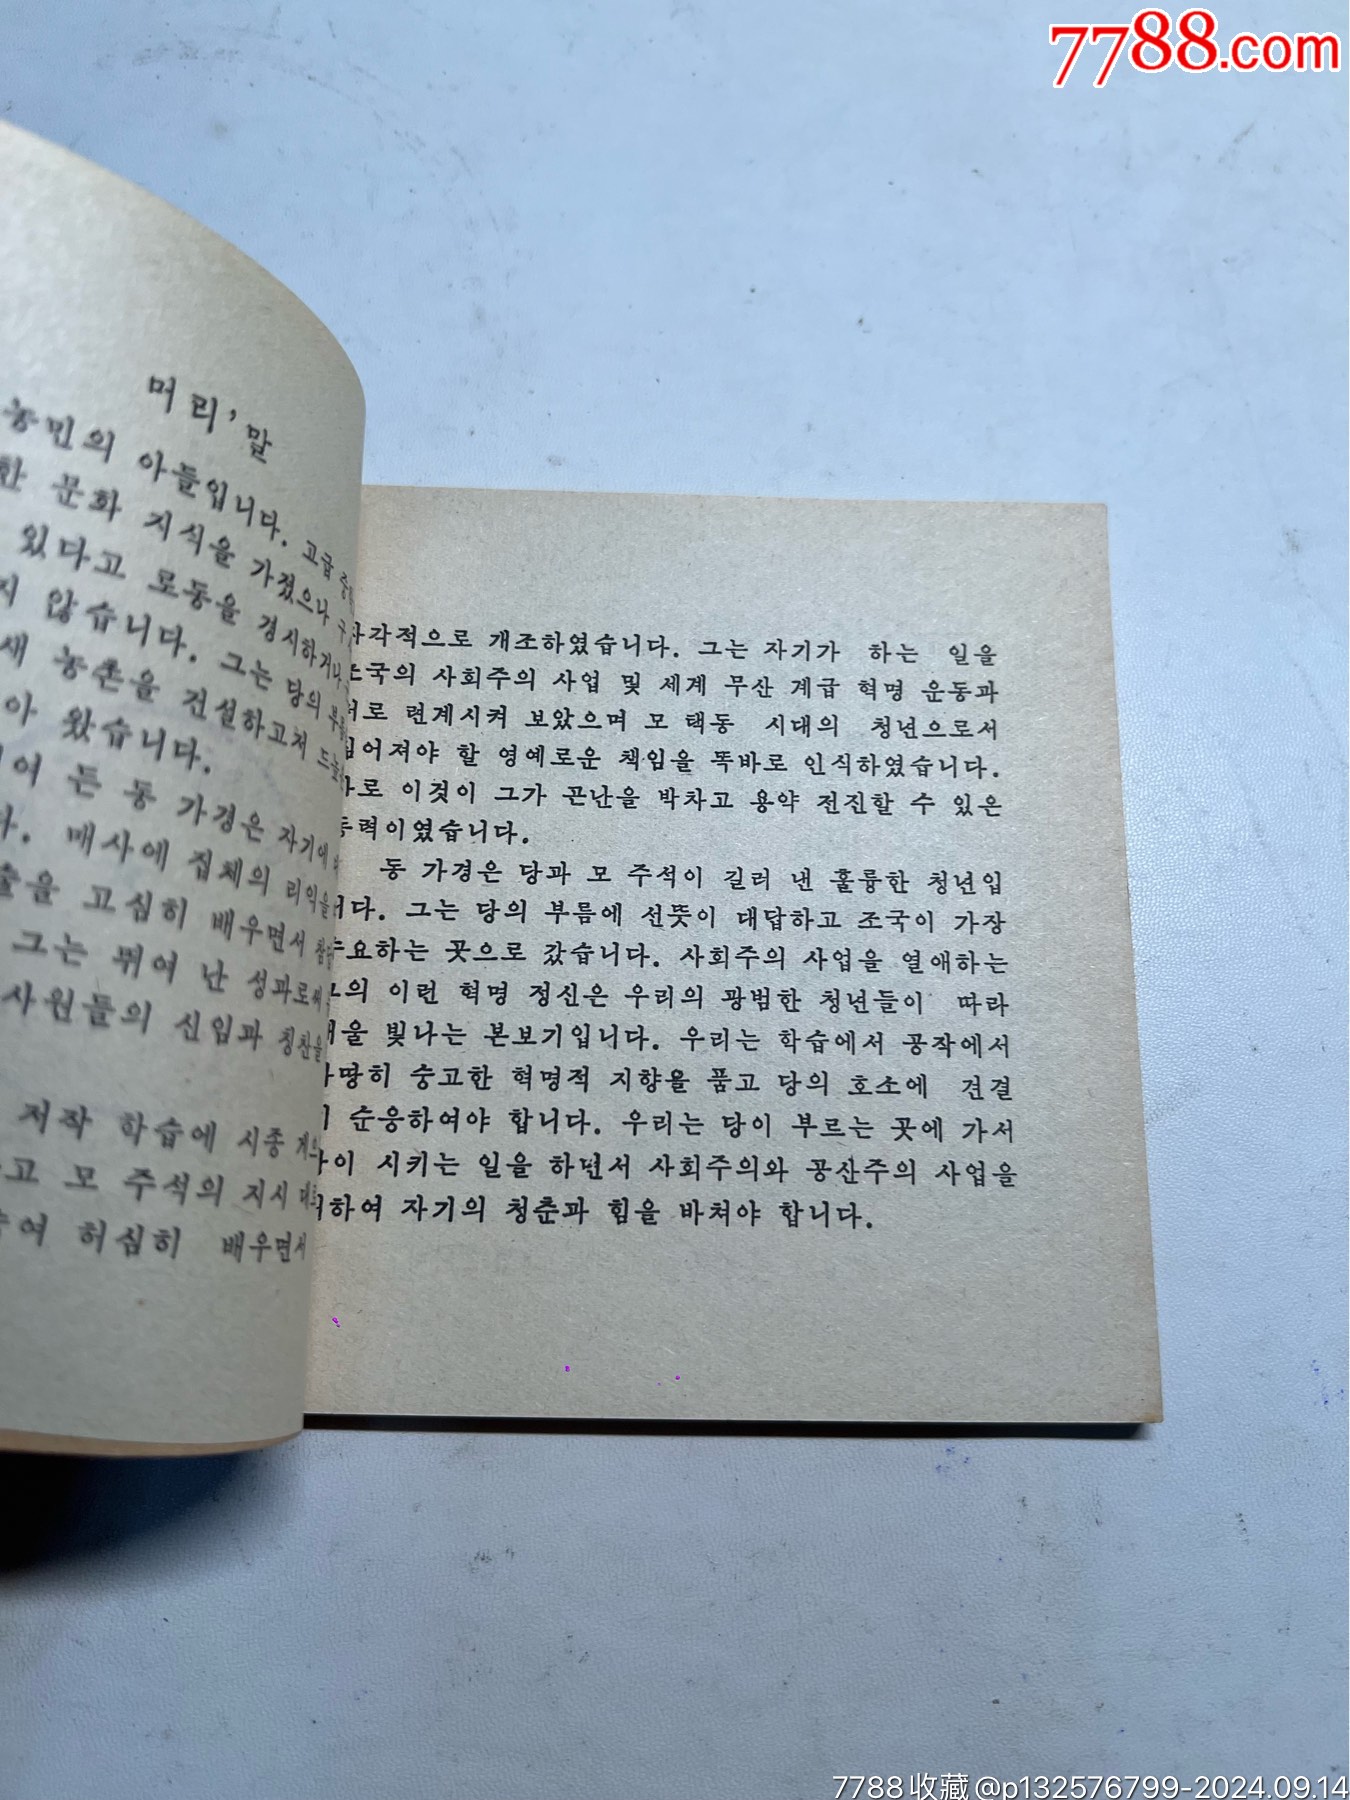 7788.com
머리'말
농민의 아들입니다. 고급
한 문화 지식을 가졌으나
있다고 로동을 경시하거나
지 않습니다. 그는 당의 부름
새 농촌을 건설하고저
아 왔습니다.
여 든 동 가경은 자기에
다. 매사에 집체의 리익을
술을 고심히 배우면서
그는 뛰여 난 성과로써
사원들의 신임과 칭찬을
저작 학습에 시종
고 모 주석의 지시
여 허심히 배우면서
자각적으로 개조하였습니다. 그는 자기가 하는 일을
조국의 사회주의 사업 및 세계 무산 계급 혁명 운동과
로 련계시켜 보았으며 모 택동 시대의 청년으로서
어져야 할 영예로운 책임을 똑바로 인식하였습니다.
바로 이것이 그가 곤난을 박차고 용약 전진할 수 있은
동력이였습니다.
동 가경은 당과 모 주석이 길러 낸 훌륭한 청년입
니다. 그는 당의 부름에 선뜻이 대답하고 조국이 가장
수요하는 곳으로 갔습니다. 사회주의 사업을 열애하는
그의 이런 혁명 정신은 우리의 광범한 청년들이 따라
배울 빛나는 본보기입니다. 우리는 학습에서 공작에서
마땅히 숭고한 혁명적 지향을 품고 당의 호소에 견결
히 순응하여야 합니다. 우리는 당이 부르는 곳에 가서
당이 시키는 일을 하면서 사회주의와 공산주의 사업을
위하여 자기의 청춘과 힘을 바쳐야 합니다.
7788收藏@p132576799-2024.09.14